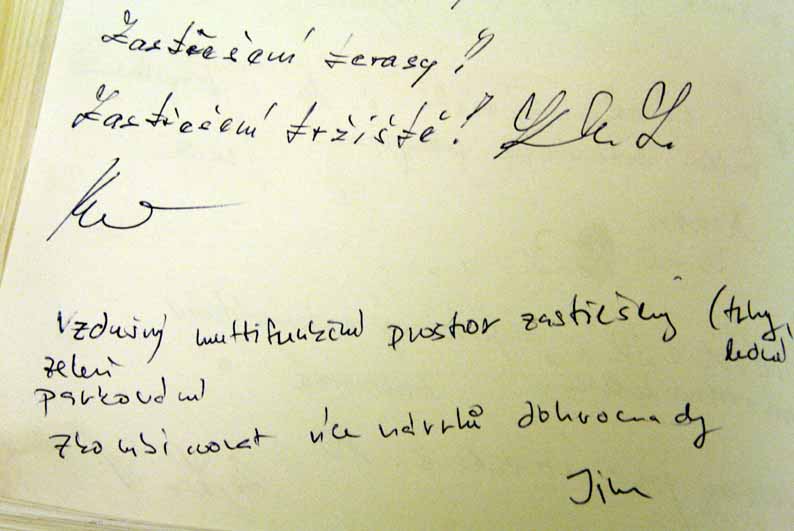 Zastřešení terasy!
Zastřešení tržiště!
Vzdušný multifunkční prostor zastřešený (trhy,
zeleň
parkování
Zkombinovat více návrhů dohromady
Jim